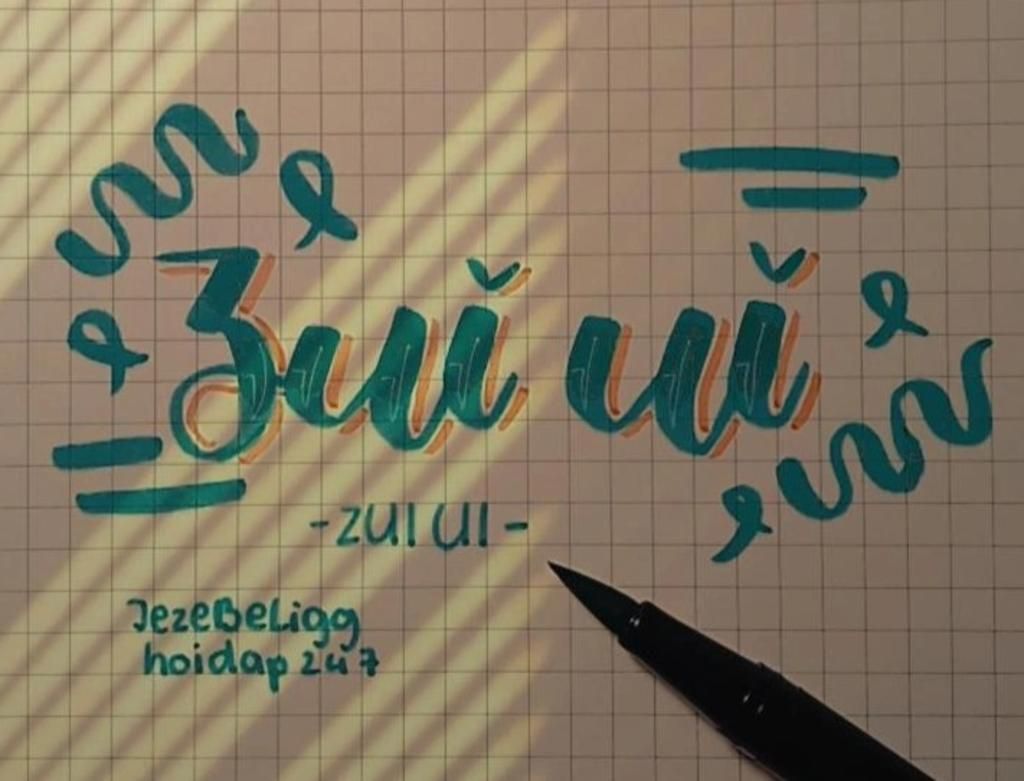 Zuǐ uǐ
- ZUI UI -
JezeBeLigg
hoidap 247